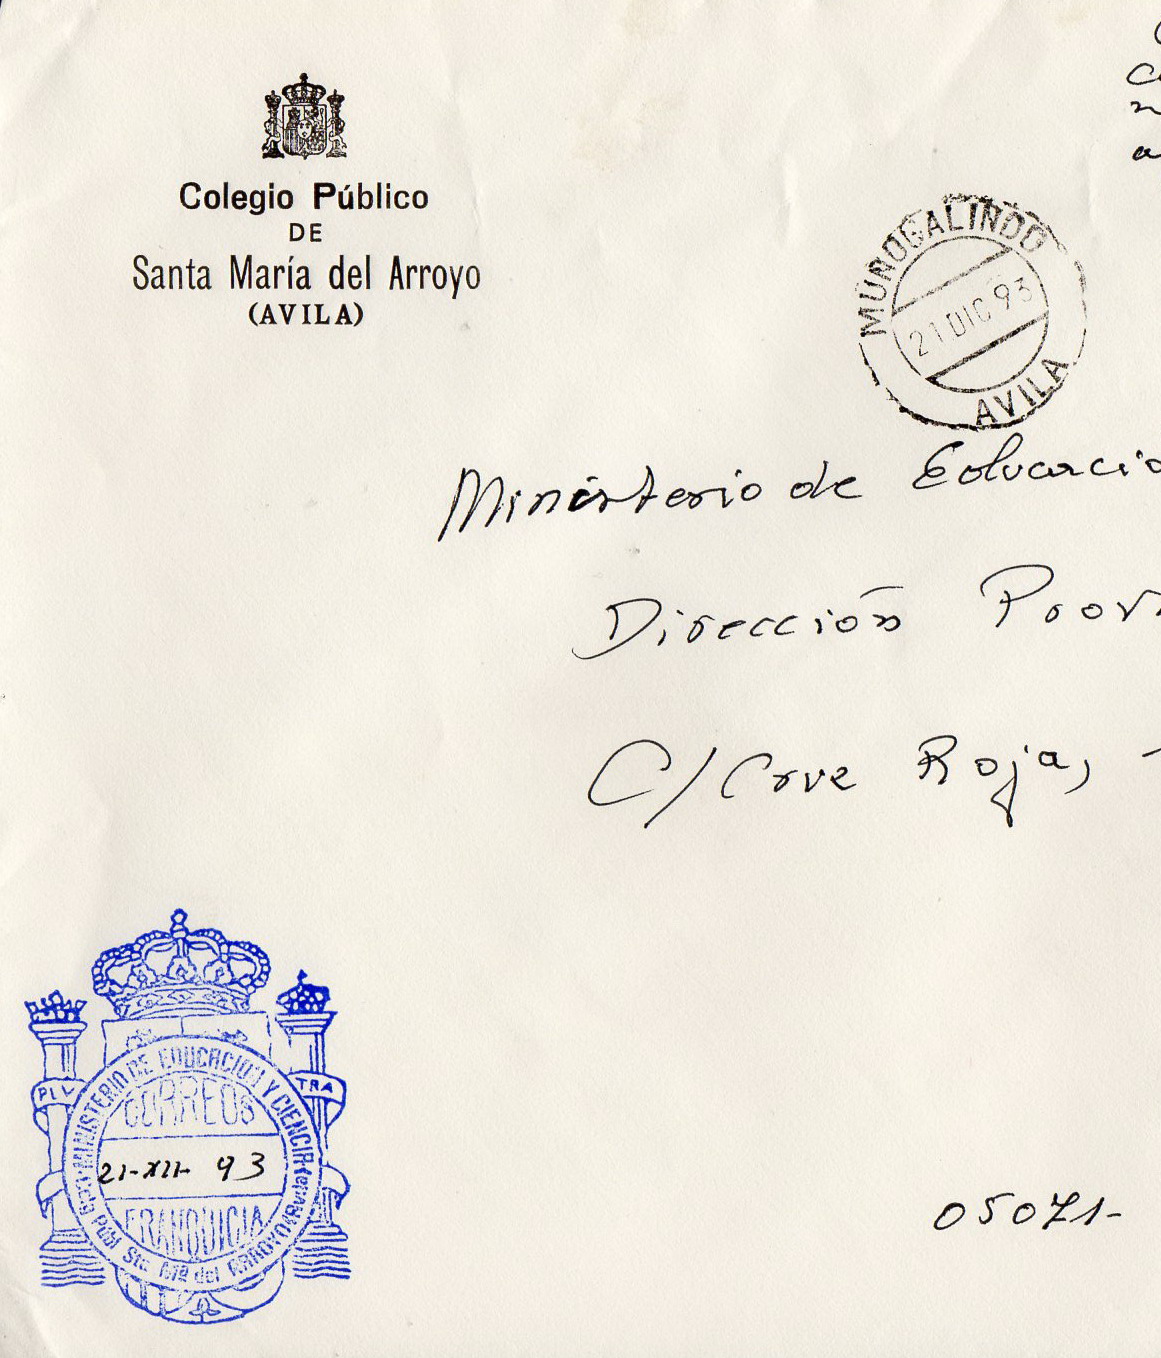 Colegio Público
DE
Santa María del Arroyo
(AVILA)
MUÑOGALINDO
21 DIC 93
AVILA
Ministerio de Educació
Dirección Prov
C/ Cruz Roja,
PLV
TRA
MINISTERIO DE EDUCACION Y CIENCIA
CORREOS
21-XII-93
FRANQUICIA
Sta Mª del ARROYO (Avila)
05071-